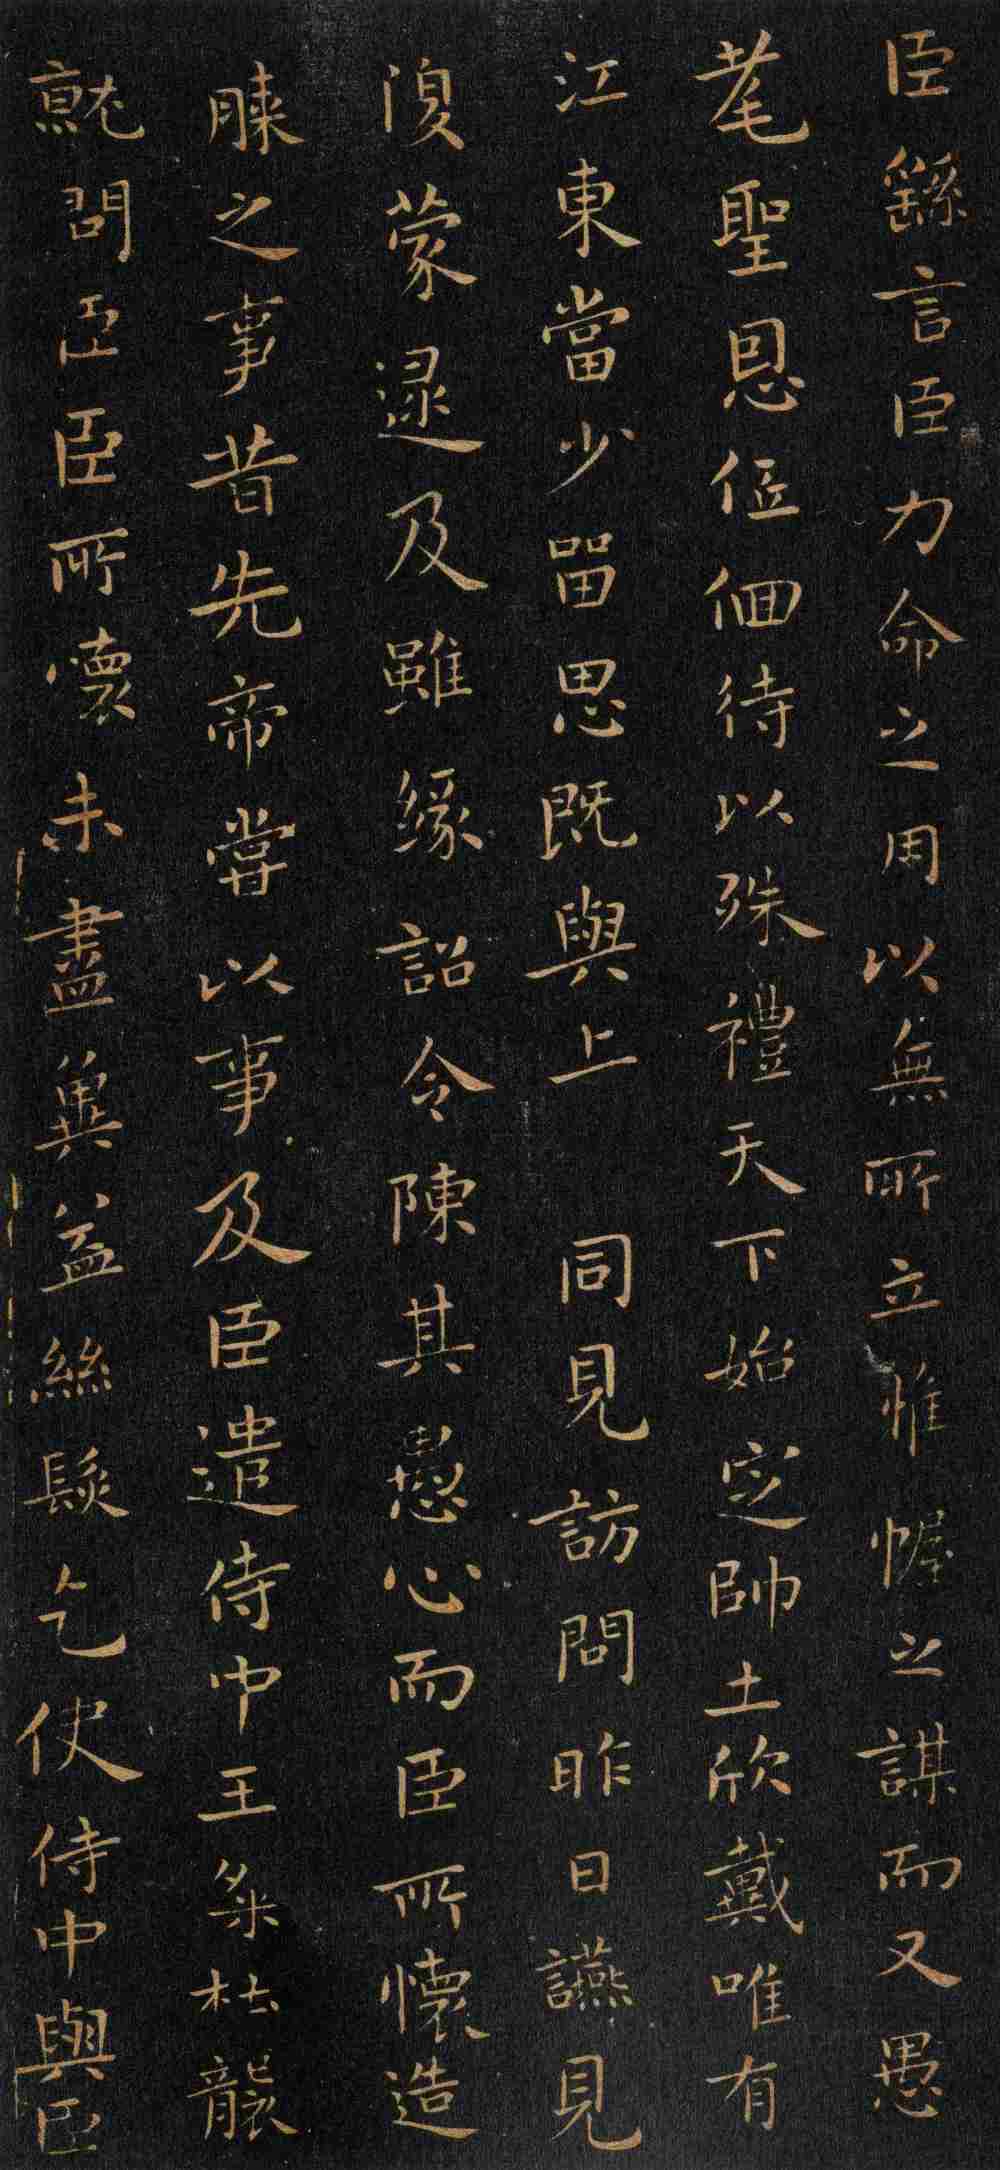 臣繇言臣力命之用以無所立帷幄之謀而又愚
耄聖恩低佪待以殊禮天下始定帥土欣戴唯有
江東當少留思既與上 同見訪問昨日讌見
復蒙逮及雖緣詔令陳其愚心而臣所懷造
膝之事昔先帝嘗以事及臣遣侍中王粲杜襲
就問臣臣所懷未盡冀益絲髮乞使侍中與臣